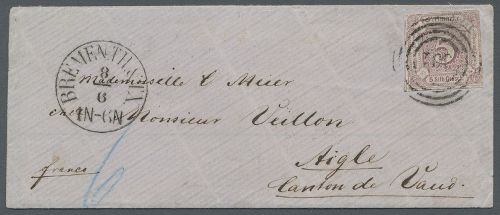 BREMEN TH. & TX.
8
6
4N-6N
5
5 SILB. GR.
Mademoiselle C Meier
chez Monsieur Veillon
Aigle
franco
Canton de Vaud.